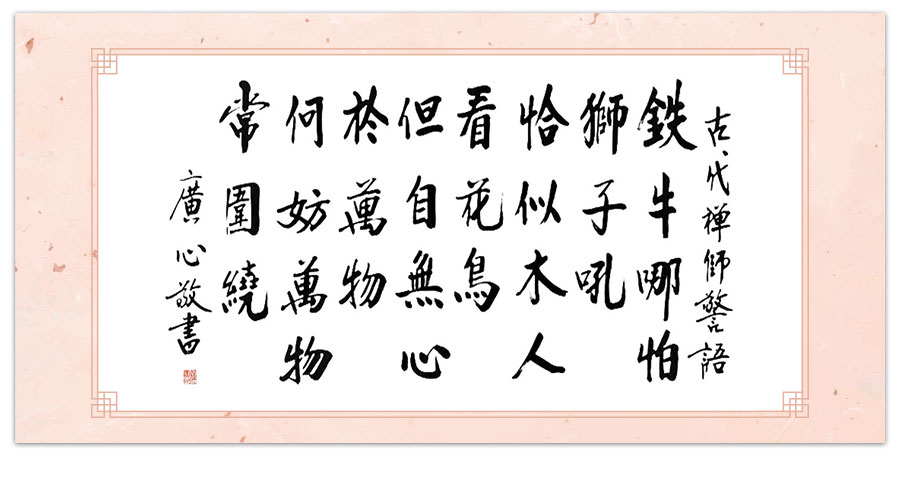 古代禅師警語
鉄牛哪怕
獅子吼
恰似木人
看花鳥
但自無心
於萬物
何妨萬物
常圍繞
廣心敬書